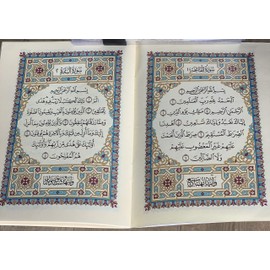 سُورَةُ الفَاتِحَةِ
بِسْمِ ٱللَّهِ ٱلرَّحْمَٰنِ ٱلرَّحِيمِ ١
ٱلْحَمْدُ لِلَّهِ رَبِّ ٱلْعَٰلَمِينَ ٢
ٱلرَّحْمَٰنِ ٱلرَّحِيمِ ٣ مَٰلِكِ يَوْمِ ٱلدِّينِ ٤
إِيَّاكَ نَعْبُدُ وَإِيَّاكَ نَسْتَعِينُ ٥ ٱهْدِنَا
ٱلصِّرَٰطَ ٱلْمُسْتَقِيمَ ٦ صِرَٰطَ ٱلَّذِينَ أَنْعَمْتَ
عَلَيْهِمْ غَيْرِ ٱلْمَغْضُوبِ عَلَيْهِمْ
وَلَا ٱلضَّآلِّينَ ٧
سُورَةُ البَقَرَةِ
بِسْمِ ٱللَّهِ ٱلرَّحْمَٰنِ ٱلرَّحِيمِ
الٓمٓ ١ ذَٰلِكَ ٱلْكِتَٰبُ لَا رَيْبَ فِيهِ هُدًى
لِّلْمُتَّقِينَ ٢ ٱلَّذِينَ يُؤْمِنُونَ بِٱلْغَيْبِ وَيُقِيمُونَ
ٱلصَّلَوٰةَ وَمِمَّا رَزَقْنَٰهُمْ يُنفِقُونَ ٣ وَٱلَّذِينَ يُؤْمِنُونَ بِمَآ أُنزِلَ
إِلَيْكَ وَمَآ أُنزِلَ مِن قَبْلِكَ وَبِٱلْءَاخِرَةِ هُمْ يُوقِنُونَ ٤
أُو۟لَٰٓئِكَ عَلَىٰ هُدًى مِّن رَّبِّهِمْ وَأُو۟لَٰٓئِكَ
هُمُ ٱلْمُفْلِحُونَ ٥